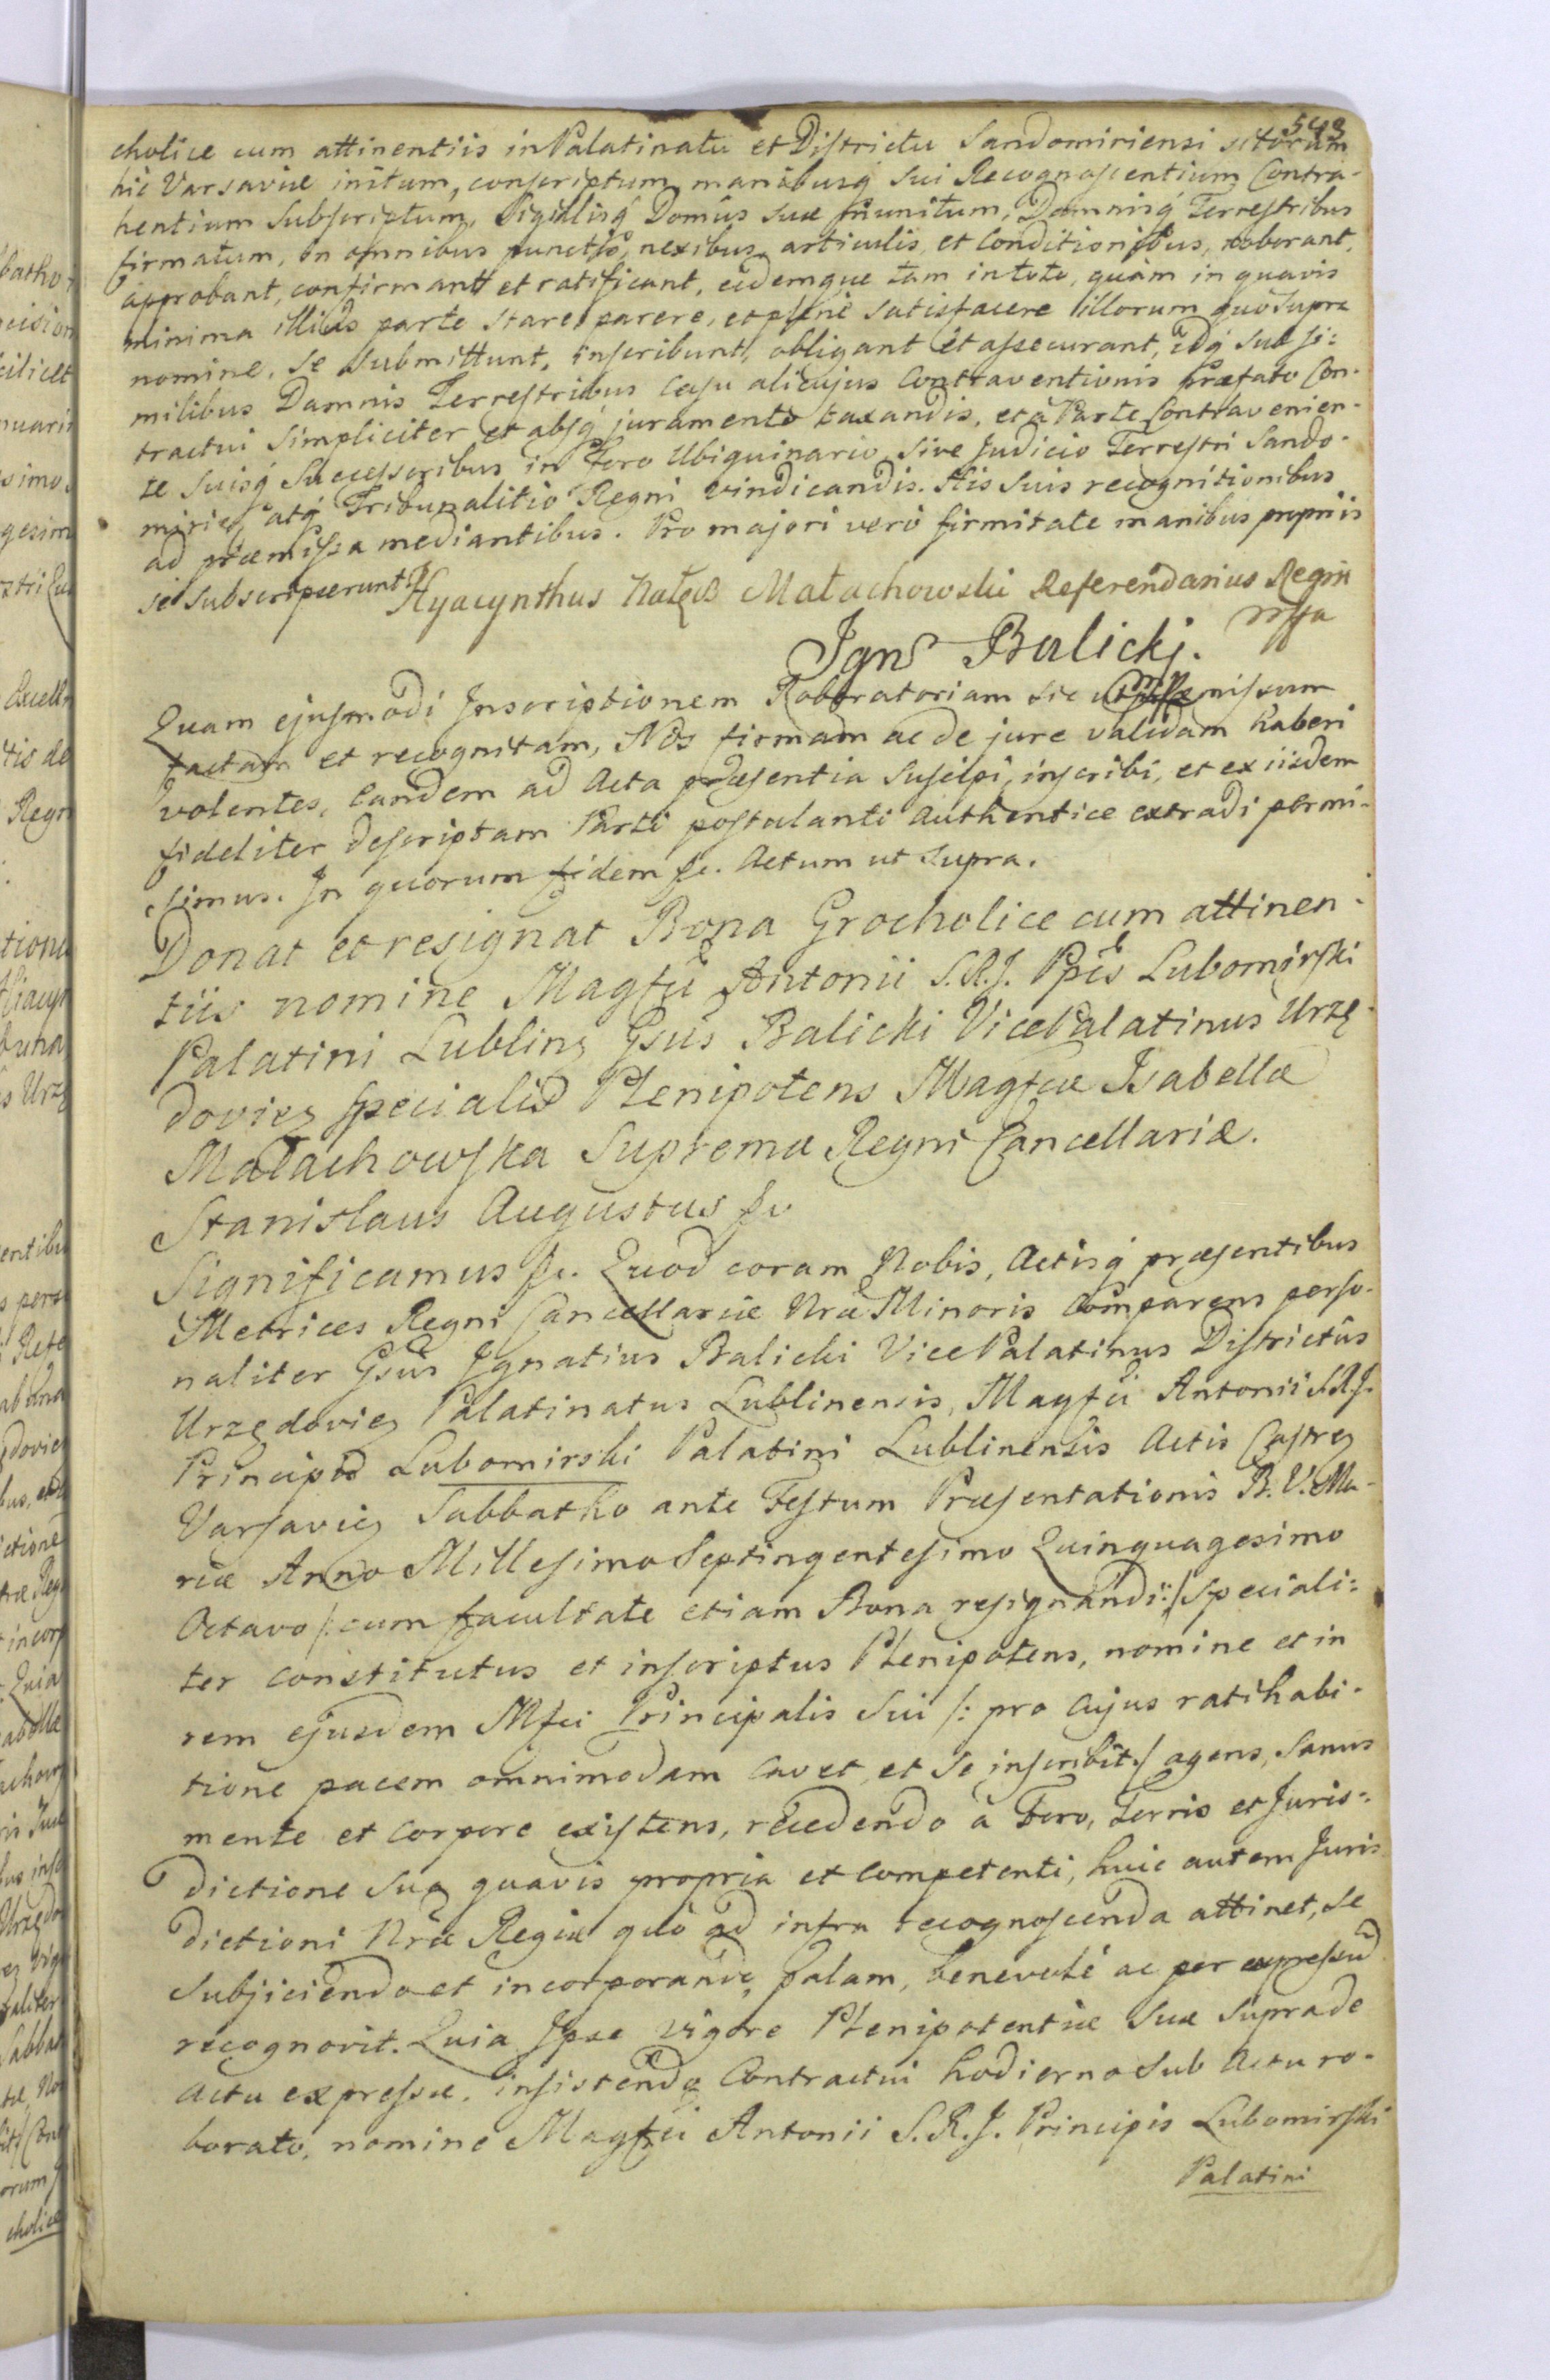 543
cholice cum attinentiis in Palatinatu et Districtu Sandomiriensi sitorum
hic Varsaviæ initum, conscriptum, manibusq́ sui Recognoscentium Contra-
hentium Subscriptum, Sigillisq́ Domûs suæ munitum, Damnisq́ Terrestribus
firmatum, in omnibus punctis, nexibus, articulis, et Conditionibus, roborant,
approbant, confirmant et ratificant, eidemque tam in toto, quàm in quavis
minima illius parte stare, parere, et plenè satisfacere illorum quô supra
nomine, se submittunt, inscribunt, obligant et assecurant, idq́ sub si:
milibus Damnis Terrestribus casu alicujus Contraventionis præfato Con-
tractui simpliciter et absq́ juramento taxandis, et à Parte Contravenien-
te suisq́ Successoribus in Foro Ubiquinario, sive Judicio Terrestri Sando-
mirien atq́ Tribunalitio Regni vindicandis. His suis recognitionibus
ad præmissa mediantibus. Pro majori verò firmitate manibus propriis
se subscripserunt.
Hyacynthus Małachowski Referendarius Regni
mppa
Igns Balicki.
mp
Quam ejusmodi Inscriptionem Roboratoriam sic ut præmissum
factam et recognitam, Nos firmam ac de jure validam haberi
volentes, eandem ad Acta præsentia suscipi, inscribi, et ex iisdem
fideliter descriptam Parti postulanti authentice extradi permi-
simus. In quorum fidem &c. Actum ut supra.
Donat et resignat Bona Grocholice cum attinen-
tiis nomine Magfci Antonii S.R.J. Ppis Lubomirski
Palatini Lublinen Gsus Balicki VicePalatinus Urzę-
dovien specialis Plenipotens Magfcæ Isabellæ
Małachowska Supremæ Regni Cancellariæ.
Stanislaus Augustus &c
Significamus &c. Quod coram Nobis, Actisq́ præsentibus
Metrices Regni Cancellariæ Nræ Minoris Comparens perso-
naliter Gsus Ignatius Balicki VicePalatinus Districtûs
Urzędovien Palatinatus Lublinensis, Magfci Antonii S.R.J.
Principis Lubomirski Palatini Lublinensis Actis Castren
Varsavien Sabbatho ante Festum Præsentationis B.V. Ma-
riæ Anno Millesimo Septingentesimo Quinquagesimo
Octavo /: cum facultate etiam Bona resignandi :/ speciali:
ter constitutus et inscriptus Plenipotens, nomine et in
rem ejusdem Mfci Principalis Sui /: pro cujus ratihabi-
tione pacem omnimodam cavet, et se inscribit :/ agens, sanus
mente et corpore existens, recedendo à Foro, Terris et Juris:
dictione sua quavis propria et competenti, huic autem Juris
dictioni Nræ Regiæ quô ad infra recognoscenda attinet, se
subjiciendo et incorporando, palam, benevolè ac per expressum
recognovit. Quia Ipse vigore Plenipotentiæ suæ supra de
actu expressæ, insistendo Contractui hodierno sub Actu ro-
borato, nomine Magfci Antonii S.R.J. Principis Lubomirski
Palatini